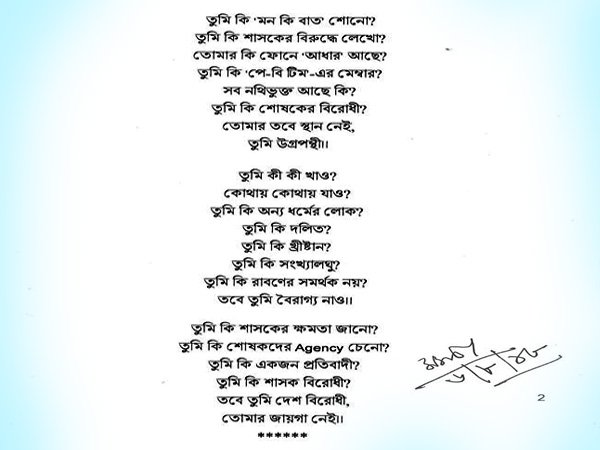 তুমি কি 'মন কি বাত' শোনো?
তুমি কি শাসকের বিরুদ্ধে লেখো?
তোমার কি ফোনে 'আধার' আছে?
তুমি কি 'পে-বি টিম'-এর মেম্বার?
সব নথিভুক্ত আছে কি?
তুমি কি শোষকের বিরোধী?
তোমার তবে স্থান নেই,
তুমি উগ্রপন্থী।।
তুমি কী কী খাও?
কোথায় কোথায় যাও?
তুমি কি অন্য ধর্মের লোক?
তুমি কি দলিত?
তুমি কি খ্রীষ্টান?
তুমি কি সংখ্যালঘু?
তুমি কি রাবণের সমর্থক নয়?
তবে তুমি বৈরাগ্য নাও।।
তুমি কি শাসকের ক্ষমতা জানো?
তুমি কি শোষকদের Agency চেনো?
তুমি কি একজন প্রতিবাদী?
তুমি কি শাসক বিরোধী?
তবে তুমি দেশ বিরোধী,
তোমার জায়গা নেই।।
******
৬/৮/১৮
2